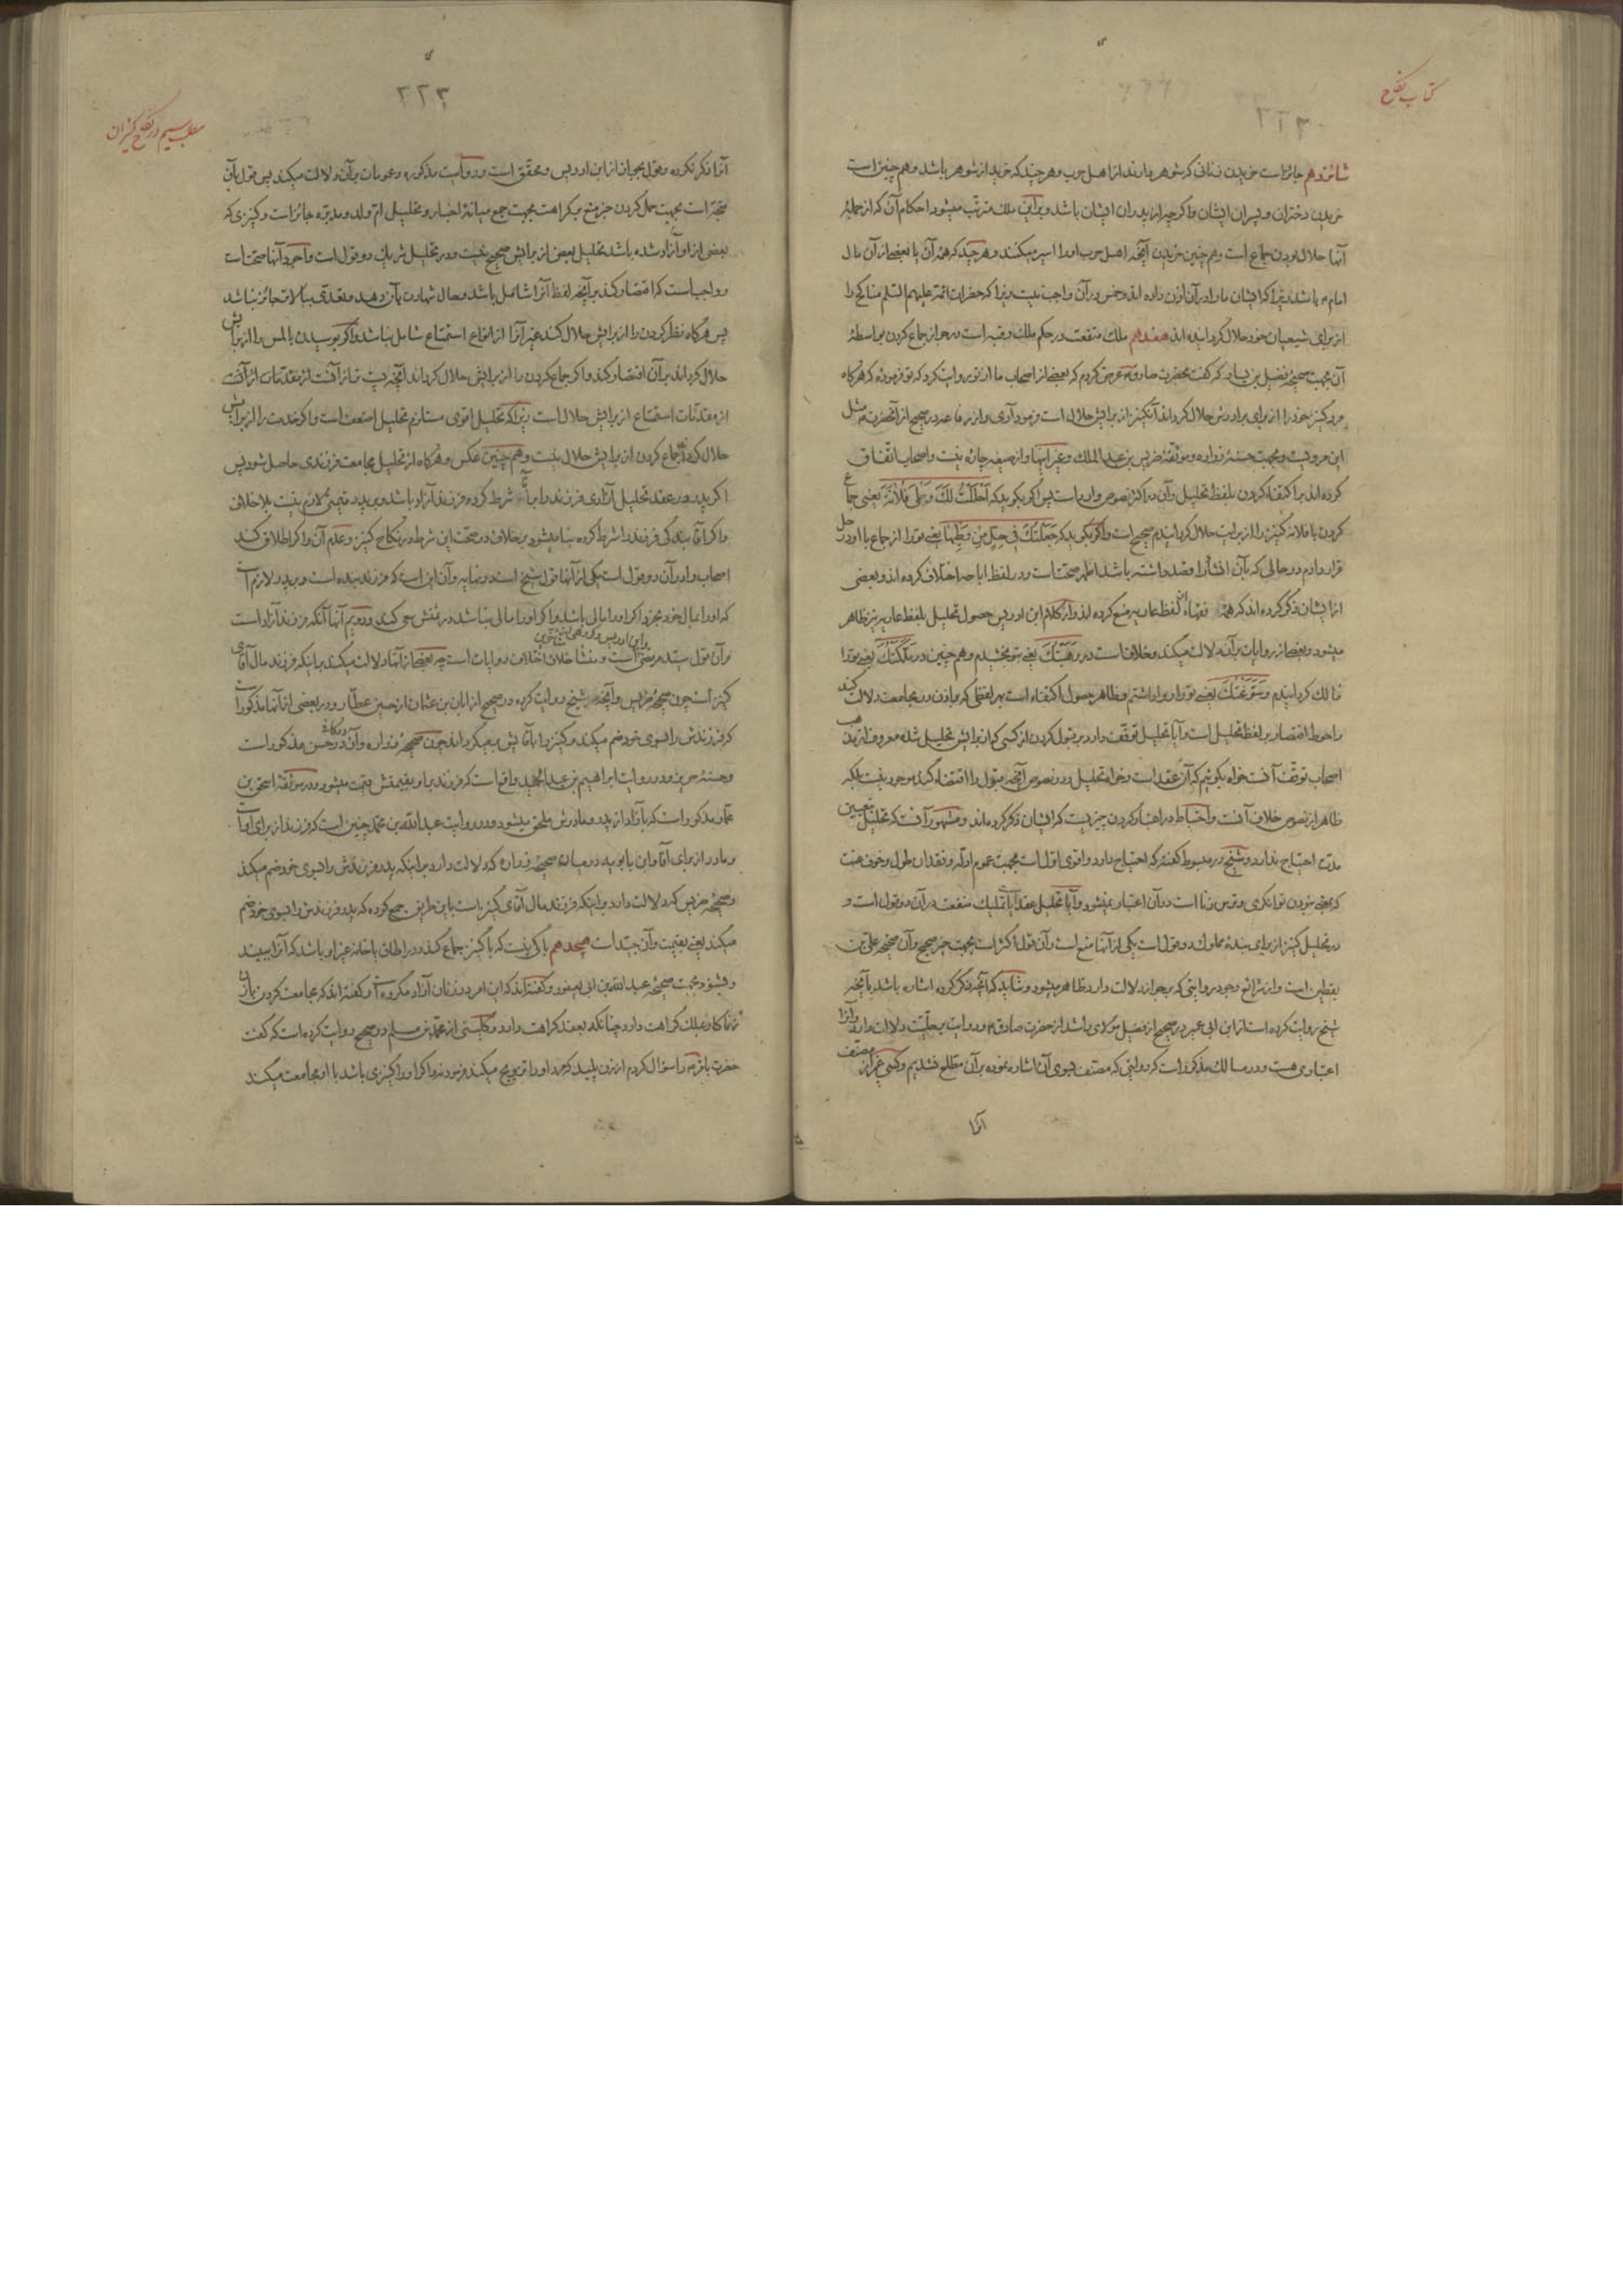 کتاب نکاح
شانزدهم جائز است خریدن زنانی که شوهر دارند از اهل حرب و هر چند که خرید از شوهر باشد و هم چنین است
خریدن دختران و پسران ایشان و اگر چه از پدران ایشان باشد و براین ملک مترتب میشود احکام آن که از جملهٔ
آنها حلال بودن جماع است و هم چنین خریدن آنچه اهل حرب او را اسیر میکنند و هر چند که همهٔ آن یا بعضی از آن مال
امام م باشد زیرا که ایشان ما را در آن اذن داده اند و خمس در آن واجب نیست زیرا که حضرات ائمه علیهم السلم مناکح را
از برای شیعیان خود حلال گردانیده اند هفدهم ملک منفعت در حکم ملک رقبه است در جواز جماع کردن بواسطهٔ
آن بجهت صحیحهٔ فضیل بن یسار که گفت بحضرت صادق م عرض کردم که بعضی از اصحاب ما از تو روایت کرد که تو فرموده که هرگاه
مرد کنیز خود را از برای برادرش حلال گرداند آن کنیز از برایش حلال است فرمود آری و از رفاعه در صحیح از آنحضرت م مثل
این مرویست و بجهت حسنهٔ زراره و موثقهٔ ضریس بن عبد الملک و غیر اینها و از صیغه چاره نیست و اصحاب اتفاق
کرده اند بر اکتفاء کردن بلفظ تحلیل و آن در اکثر نصوص وارد است پس اگر بگوید که اَحلَلتُ لَکَ وَطیَ فُلانَة یعنی جماع
کردن با فلانه کنیز را از برایت حلال گردانیدم صحیح است و اگر بگوید که جَعَلتُکَ فی حِلٍّ مِن وَطیِها یعنی تو را از جماع با او در حل
قرار دادم در حالی که بآن انشأ را قصد داشته باشد اظهر صحت است و در لفظ اباحه اختلاف کرده اند و بعضی
از ایشان ذکر کرده اند که همهٔ فقهاء از لفظ عاریه منع کرده اند و از کلام ابن ادریس حصول تحلیل بلفظ عاریه نیز ظاهر
میشود و بعضی از روایات بر آن دلالت میکند و خلاف است در وَهَبتُکَ یعنی بتو بخشیدم و هم چنین در مَلَّکتُکَ یعنی تو را
مالک گردانیدم و سَوَّغتُکَ یعنی تو را روا داشتم و ظاهر حصول اکتفاء است بهر لفظی که بر اذن در مجامعت دلالت کند
و احوط اقتصار بر لفظ تحلیل است و آیا تحلیل توقف دارد بر قبول کردن از کسی که از برایش تحلیل شده معروف از مذهب
اصحاب توقف آنست خواه بگوئیم که آن عقد است و خواه تحلیل و در نصوص آنچه قبول را اقتضاء کند موجود نیست بلکه
ظاهر از نصوص خلاف آنست و احتیاط در اعتبار کردن چیزیست که ایشان ذکر کرده اند و مشهور آنست که تحلیل بتعیین
مدت احتیاج ندارد و شیخ در مبسوط گفته که احتیاج دارد و اقوی اول است بجهت عموم ادله و فقدان طول و خوف عنت
که یعنی نبودن توانگری و ترس زنا است در آن اعتبار نمیشود و آیا تحلیل عقد است یا تملیک منفعت در آن دو قول است و
در تحلیل کنیز از برای بندهٔ مملوک دو قول است یکی از آنها منع است و آن قول اکثر است بجهت خبر صحیح و آن صحیحه علی بن
یقطین است و از شرائع وجود روایتی که بر جواز دلالت دارد ظاهر میشود و شاید که آنچه ذکر کرده اشاره باشد بآنچه
شیخ روایت کرده است از ابن ابی عمیر در صحیح از فضیل مولای راشد از حضرت صادق م و روایت بحلیت دلالت دارد و آنرا
اعتباری هست و در مسالک مذکور است که روایتی که مصنف بسوی آن اشاره نموده بر آن مطلع نشدیم و کسی غیر از مصنف
آنرا
٣٢٣
مطلب سیم در نکاح کنیزان
آنرا ذکر نکرده و قول بجواز از ابن ادریس و محقق است و روایت مذکوره و عمومات بر آن دلالت میکند پس قول بآن
متجه است بجهت حمل کردن خبر منع بر کراهت بجهت جمع میانهٔ اخبار و تحلیل ام ولد و مدبره جائز است و کنیزی که
بعضی از او آزاد شده باشد تحلیل بعض از برایش صحیح نیست و در تحلیل شریک دو قول است و اجود آنها صحت است
و واجب است که اقتصار کند بر آنچه لفظ آنرا شامل باشد و حال شهادت بآن دهد و تعدی بالات جائز نباشد
پس هرگاه نظر کردن را از برایش حلال کند غیر آنرا از انواع استمتاع شامل نباشد و اگر بوسیدن یا لمس را از برایش
حلال گرداند بر آن اقتصار کند و اگر جماع کردن را از برایش حلال گرداند آنچه پست تر از آنست از مقدمات از آنست
از مقدمات استمتاع از برایش حلال است زیرا که تحلیل اقوی مستلزم تحلیل اضعف است و اگر خدمت را از برایش
حلال کرد جماع کردن از برایش حلال نیست و هم چنین عکس و هرگاه از تحلیل مجامعت فرزندی حاصل شود پس
اگر پدر در عقد تحلیل آزادی فرزند را با شرط کرده فرزند آزاد باشد و بر پدر قیمتی لازم نیست بلا خلاف
و اگر آقا بندگی فرزند را شرط کرده بنا میشود بر خلاف در صحت این شرط در نکاح کنیز و عدم آن و اگر اطلاق کند
اصحاب را در آن دو قول است یکی از آنها قول شیخ است در نهایه و آن این است که فرزند بنده است و بر پدر لازم است
که او را بمال خود بخرد اگر او را مالی باشد و اگر او را مالی نباشد در ثمنش سعی کند و دویم آنها آنکه فرزند آزاد است
و آن قول سید مرتضی و ابن ادریس است و منشأ خلاف اختلاف روایات است چه بعضی از آنها دلالت میکند بر اینکه فرزند مال آقای
کنیز است چون صحیحهٔ ضریس و آنچه شیخ روایت کرده در صحیح از ابان بن عثمان از حسین عطار و در بعضی از آنها مذکور است
که فرزندش را بسوی خود ضم میکند و کنیز را بآقایش برمیگرداند چون صحیحهٔ زراره و آن در کافی در حسن مذکور است
و حسنهٔ حریز و در روایت ابراهیم بن عبد الحمید واقع است که فرزند بر او بقیمتش قیمت میشود و در موثقهٔ اسحق بن
عمار مذکور است که بآزاد از پدر و مادرش ملحق میشود و در روایت عبد الله بن محمد چنین است که فرزند از برای اوست
و مادر از برای آقا و ابن بابویه در میانهٔ صحیحهٔ زراره که دلالت دارد بر اینکه پدر فرزندش را بسوی خود ضم میکند
و صحیحهٔ ضریس که دلالت دارد بر اینکه فرزند مال آقای کنیز است باین طریق جمع کرده که پدر فرزندش را بسوی خود ضم
میکند یعنی بقیمت و آن جید است هیجدهم باکی نیست که با کنیز جماع کند و در اطاق یا خانه غیر او باشد که آنرا ببیند
و بشنود بجهت صحیحهٔ عبد الله بن ابی یعفور و گفته اند که این امر در زنان آزاد مکروه است و گفته اند که مجامعت کردن با زن
زناکار بملک کراهت دارد چنانکه بعقد کراهت دارد و کلینی از محمد بن مسلم در صحیح روایت کرده است که گفت
حضرت باقر م را سؤال کردم از زن پلید که مرد او را تزویج میکند فرمود نه و اگر او را کنیزی باشد با او مجامعت میکند